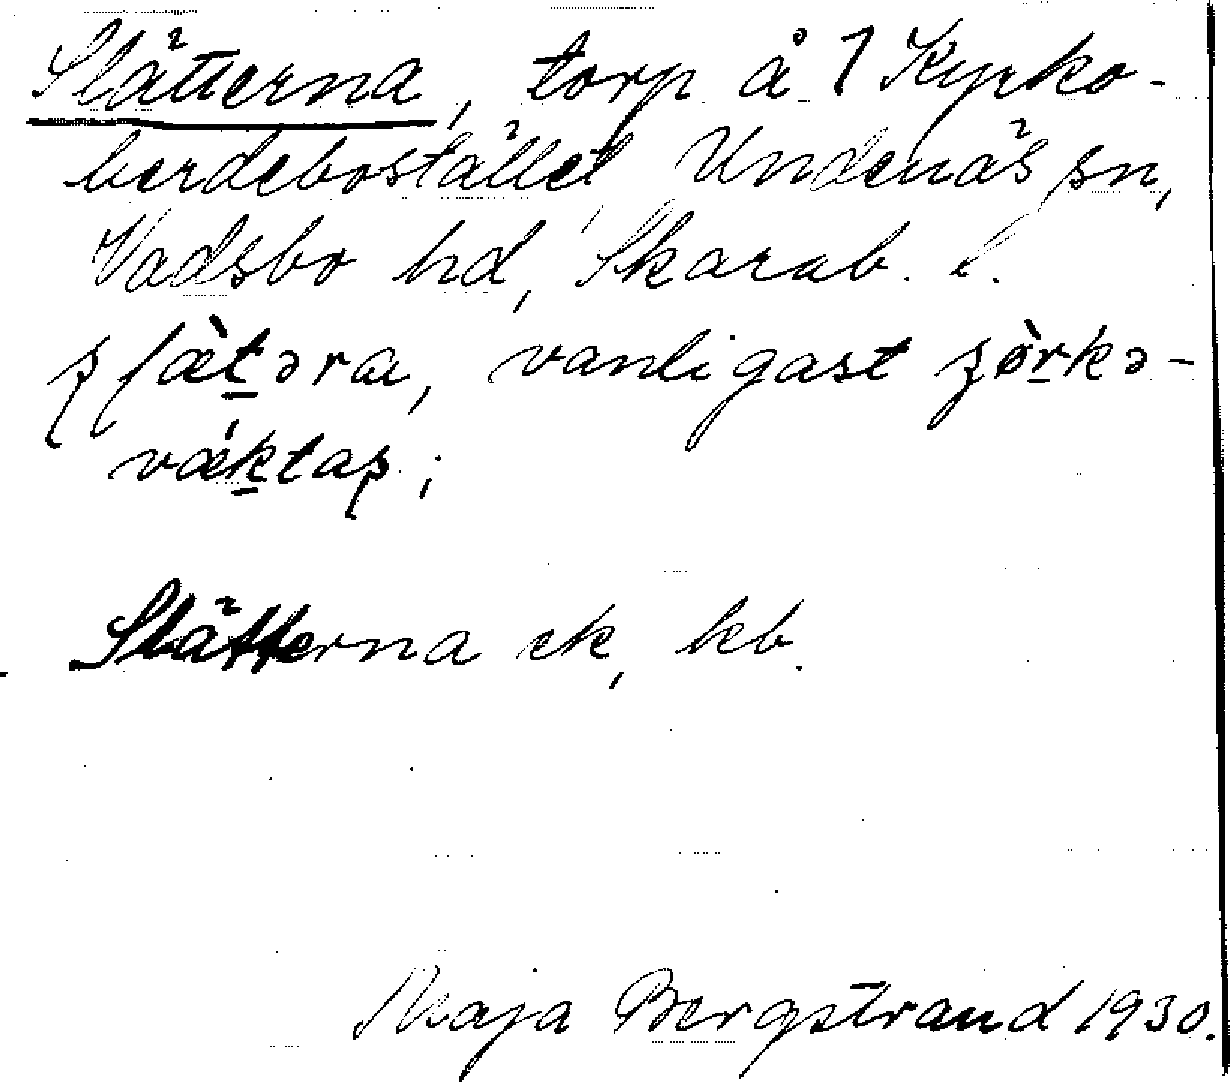 Slätterna, torp å 1 Kyrko-
herdebostället Undenäs sn,
Vadsbo hd, Skarab. l.
vanligast
Slätterna ek, kb.
Maja Bergstrand 1930.